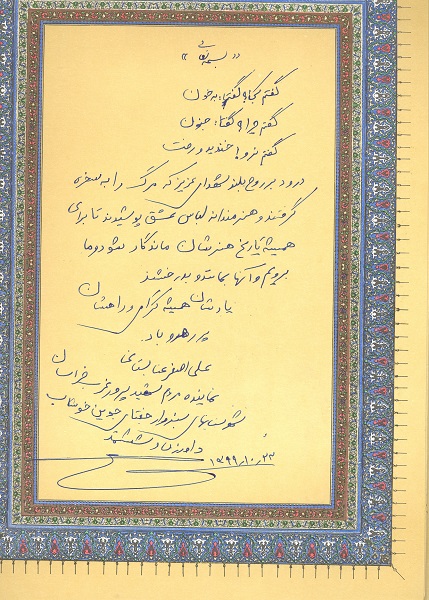 «بسمه تعالی»
گفتم کجا؟ گفتا: به خون
گفتم چرا؟ گفتا: جنون
گفتم نرو! خندید و رفت
درود بر روح بلند شهدای عزیز که مرگ را به سخره
گرفتند و هنرمندانه لباس عشق پوشیدند تا برای
همیشه تاریخ هنرشان ماندگار شود و ما
برویم و آنها بمانند و بدرخشند
یادشان همیشه گرامی و راهشان
پر رهرو باد.
علی اصغر عنابستانی
نماینده مردم شهید پرور غرب خراسان
شهرستانهای سبزوار جغتای جوین خوشاب
داورزن و ششتمد
۱۳۹۹/۱۰/۲۳